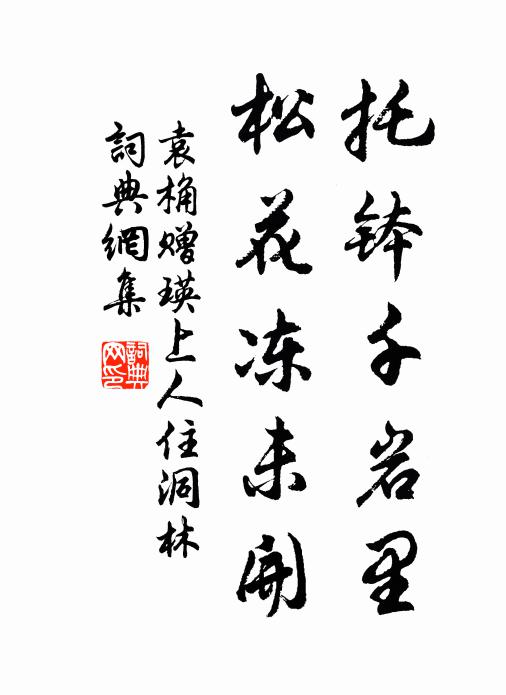 托钵千岩里
松花冻未開
袁桷赠瑛上人住洞林
詞典網集
詞典網印